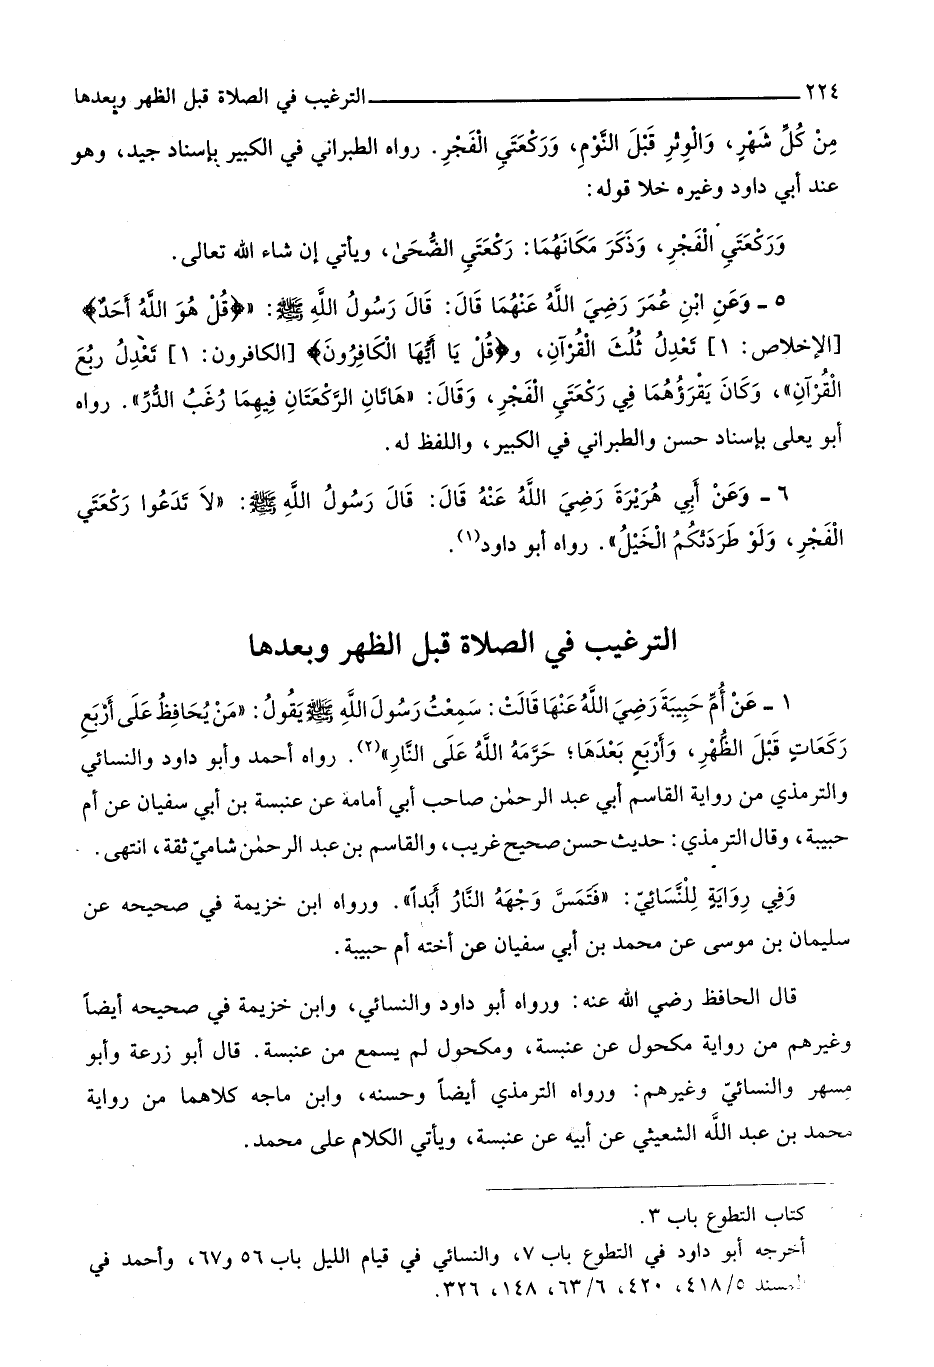 ٢٢٤ الترغيب في الصلاة قبل الظهر وبعدها
مِنْ كُلِّ شَهْرٍ، وَالْوِتْرِ قَبْلَ النَّوْمِ، وَرَكْعَتَي الْفَجْرِ. رواه الطبراني في الكبير بإسناد جيد، وهو
عند أبي داود وغيره خلا قوله:
وَرَكْعَتَي الْفَجْرِ، وَذَكَرَ مَكَانَهُمَا: رَكْعَتَي الضُّحَىٰ، ويأتي إن شاء الله تعالى.
٥ - وَعَنِ ابْنِ عُمَرَ رَضِيَ اللَّهُ عَنْهُمَا قَالَ: قَالَ رَسُولُ اللَّهِ ﷺ: «﴿قُلْ هُوَ اللَّهُ أَحَدٌ﴾
[الإخلاص: ١] تَعْدِلُ ثُلُثَ الْقُرْآنِ، و﴿قُلْ يَا أَيُّهَا الْكَافِرُونَ﴾ [الكافرون: ١] تَعْدِلُ رِبُعَ
الْقُرْآنِ»، وَكَانَ يَقْرَؤُهُمَا فِي رَكْعَتَي الْفَجْرِ، وَقَالَ: «هَاتَانِ الرَّكْعَتَانِ فِيهِمَا رُغَبُ الدُّرِّ». رواه
أبو يعلى بإسناد حسن والطبراني في الكبير، واللفظ له.
٦ - وَعَنْ أَبِي هُرَيْرَةَ رَضِيَ اللَّهُ عَنْهُ قَالَ: قَالَ رَسُولُ اللَّهِ ﷺ: «لاَ تَدَعُوا رَكْعَتَي
الْفَجْرِ، وَلَوْ طَرَدَتْكُمُ الْخَيْلُ». رواه أبو داود(١).
الترغيب في الصلاة قبل الظهر وبعدها
١ - عَنْ أُمِّ حَبِيبَةَ رَضِيَ اللَّهُ عَنْهَا قَالَتْ: سَمِعْتُ رَسُولَ اللَّهِ ﷺ يَقُولُ: «مَنْ يُحَافِظُ عَلَى أَرْبَعِ
رَكَعَاتٍ قَبْلَ الظُّهْرِ، وَأَرْبَعٍ بَعْدَهَا؛ حَرَّمَهُ اللَّهُ عَلَى النَّارِ»(٢). رواه أحمد وأبو داود والنسائي
والترمذي من رواية القاسم أبي عبد الرحمٰن صاحب أبي أمامة عن عنبسة بن أبي سفيان عن أم
حبيبة، وقال الترمذي: حديث حسن صحيح غريب، والقاسم بن عبد الرحمٰن شاميّ ثقة، انتهى.
وَفِي رِوَايَةٍ لِلنَّسَائِيّ: «فَتَمَسَّ وَجْهَهُ النَّارُ أَبَداً». ورواه ابن خزيمة في صحيحه عن
سليمان بن موسى عن محمد بن أبي سفيان عن أخته أم حبيبة.
قال الحافظ رضي الله عنه: ورواه أبو داود والنسائي، وابن خزيمة في صحيحه أيضاً
وغيرهم من رواية مكحول عن عنبسة، ومكحول لم يسمع من عنبسة. قال أبو زرعة وأبو
مسهر والنسائيّ وغيرهم: ورواه الترمذي أيضاً وحسنه، وابن ماجه كلاهما من رواية
محمد بن عبد اللَّه الشعيثي عن أبيه عن عنبسة، ويأتي الكلام على محمد.
كتاب التطوع باب ٣.
أخرجه أبو داود في التطوع باب ٧، والنسائي في قيام الليل باب ٥٦ و٦٧، وأحمد في
المسند ٤١٨/٥، ٤٢٠، ٦٣/٦، ١٤٨، ٣٢٦.